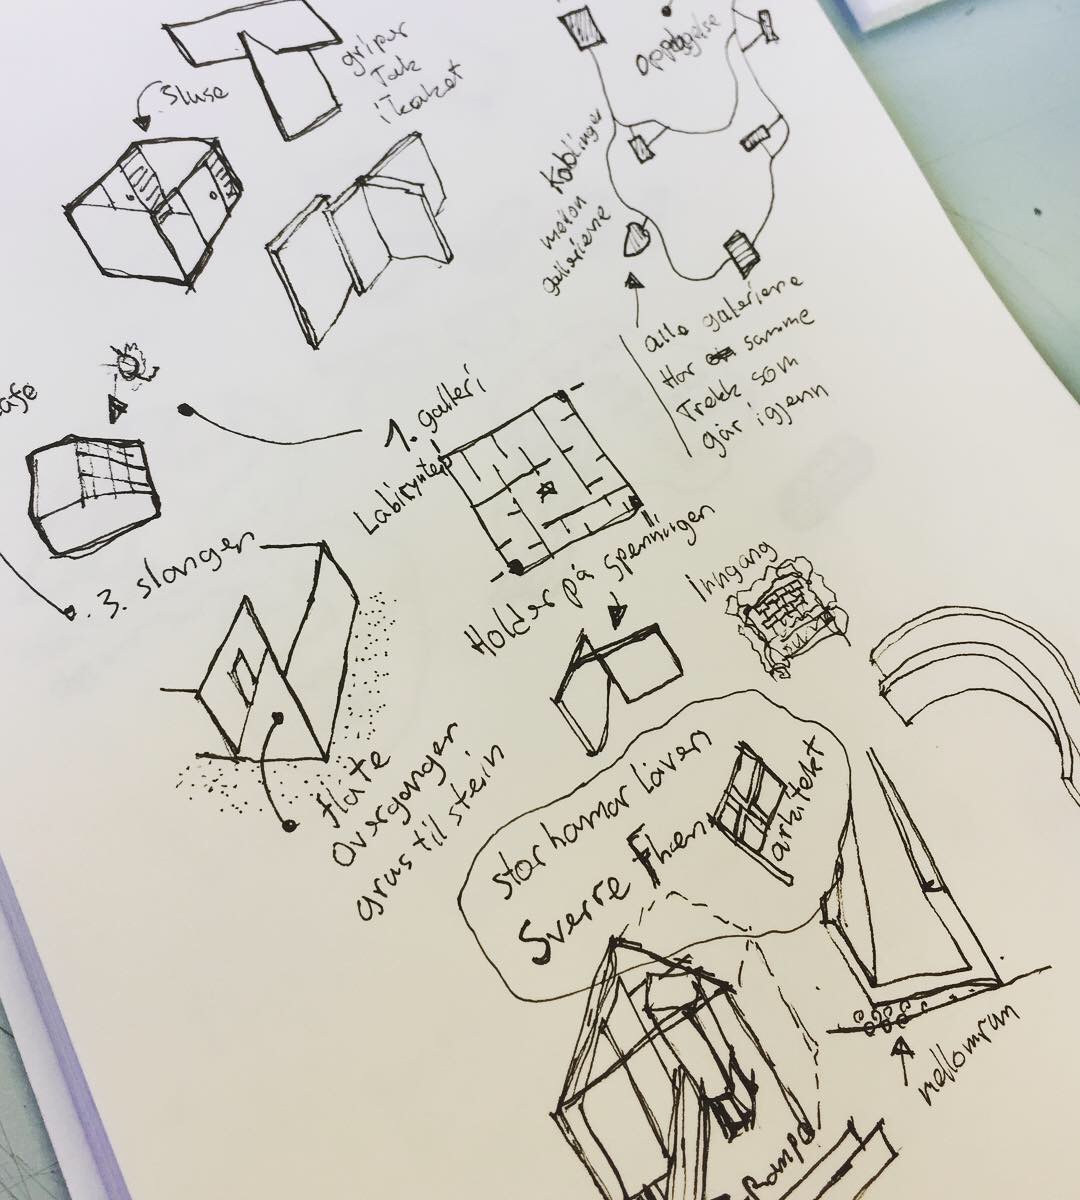 griper
Tak
i Taket
Sluse
Oppdagelse
Koblinger
mellon
galleriene
alle galeriene
Har samme
Trekk som
går igjenn
afe
1. galleri
Labirynten
3. slangen
Holder på spenningen
Inngang
flåte
overganger
grus til stein
storhamar Låven
Sverre Fhen
arkitekt
mellomrum
Rampe